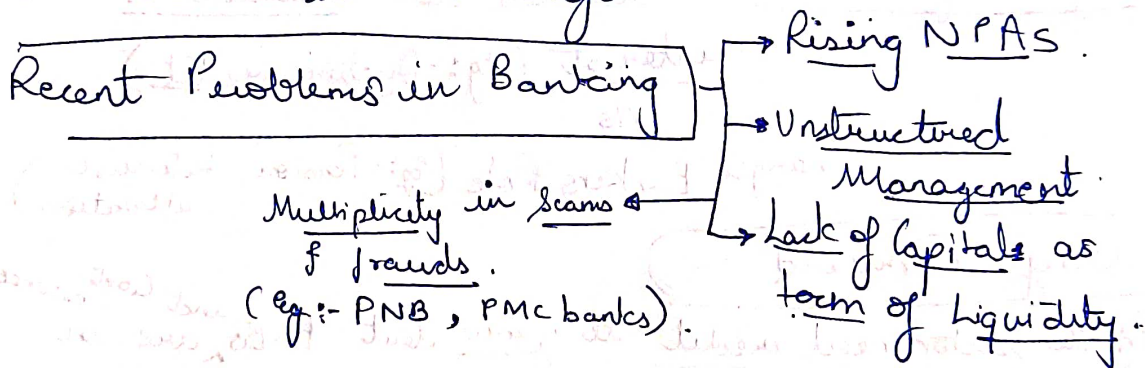 Recent Problems in Banking
Rising NPAs.
Unstructured
Management.
Lack of Capitals as
form of Liquidity.
Multiplicity in Scams
& frauds.
(eg:- PNB, PMC banks).